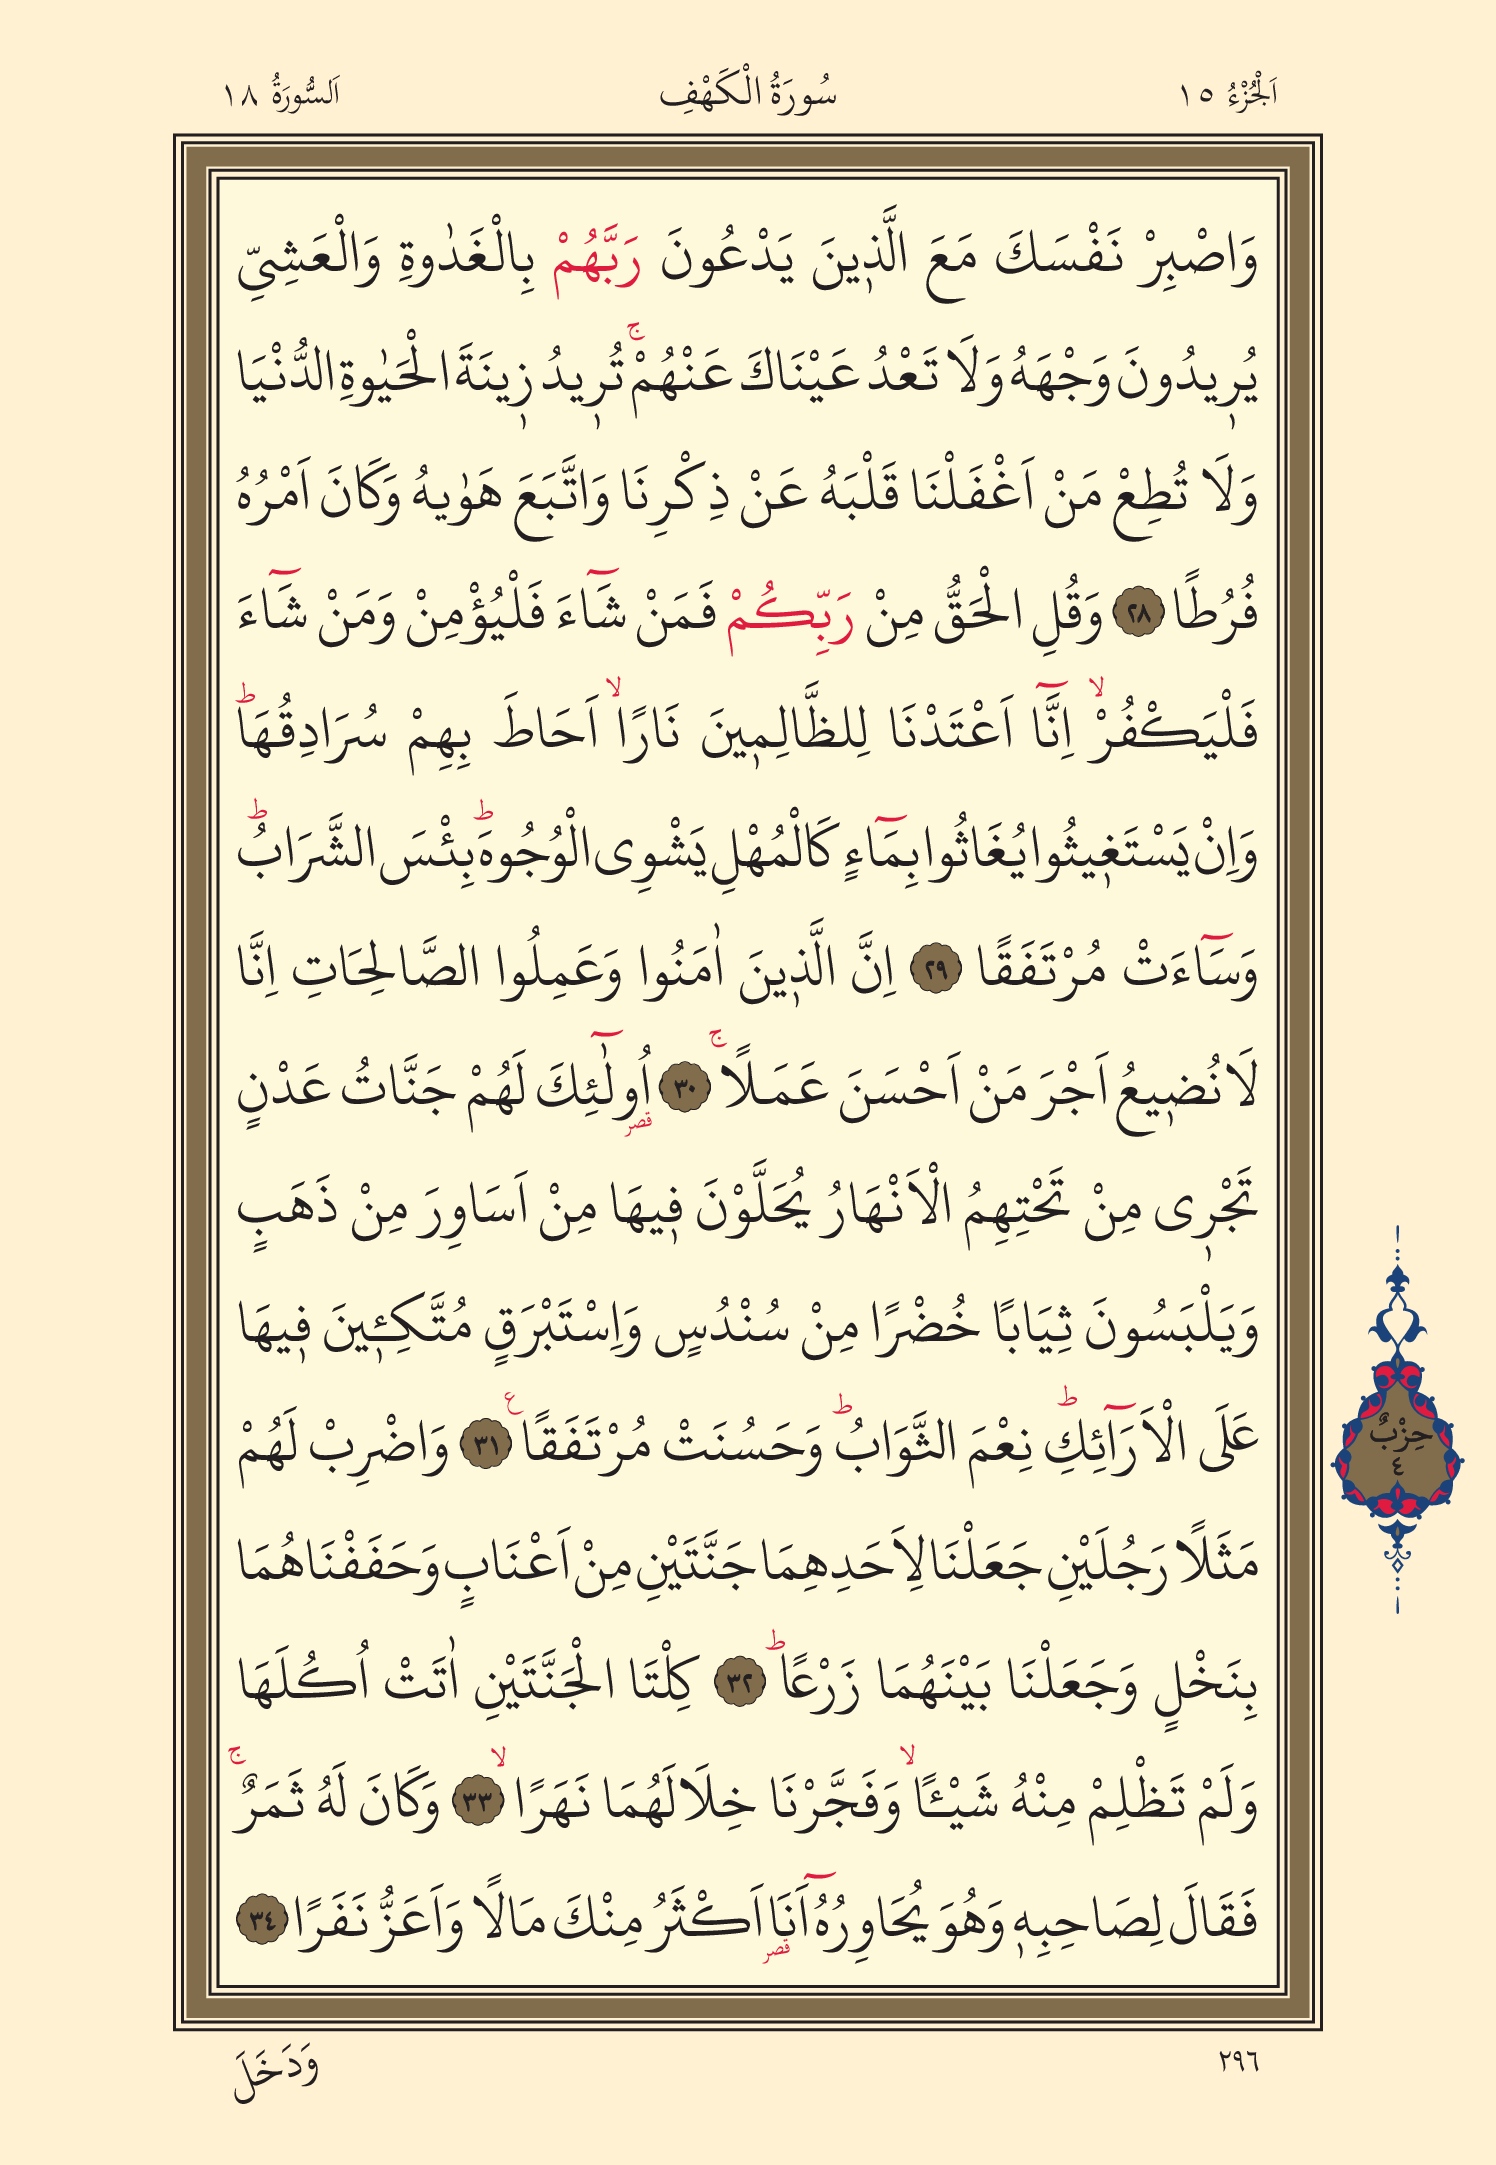 اَلْجُزْءُ ١٥
سُورَةُ الْكَهْفِ
اَلسُّورَةُ ١٨
وَاصْبِرْ نَفْسَكَ مَعَ الَّذ۪ينَ يَدْعُونَ رَبَّهُمْ بِالْغَدٰوةِ وَالْعَشِيِّ
يُر۪يدُونَ وَجْهَهُ وَلَا تَعْدُ عَيْنَاكَ عَنْهُمْۚ تُر۪يدُ ز۪ينَةَ الْحَيٰوةِ الدُّنْيَا
وَلَا تُطِعْ مَنْ اَغْفَلْنَا قَلْبَهُ عَنْ ذِكْرِنَا وَاتَّبَعَ هَوٰيهُ وَكَانَ اَمْرُهُ
فُرُطًا ﴿٢٨﴾ وَقُلِ الْحَقُّ مِنْ رَبِّكُمْ فَمَنْ شَٓاءَ فَلْيُؤْمِنْ وَمَنْ شَٓاءَ
فَلْيَكْفُرْۙ اِنَّٓا اَعْتَدْنَا لِلظَّالِم۪ينَ نَارًاۙ اَحَاطَ بِهِمْ سُرَادِقُهَاۜ
وَاِنْ يَسْتَغ۪يثُوا يُغَاثُوا بِمَٓاءٍ كَالْمُهْلِ يَشْوِى الْوُجُوهَۜ بِئْسَ الشَّرَابُۜ
وَسَٓاءَتْ مُرْتَفَقًا ﴿٢٩﴾ اِنَّ الَّذ۪ينَ اٰمَنُوا وَعَمِلُوا الصَّالِحَاتِ اِنَّا
لَا نُض۪يعُ اَجْرَ مَنْ اَحْسَنَ عَمَلًاۚ ﴿٣٠﴾ اُولٰٓئِكَ لَهُمْ جَنَّاتُ عَدْنٍ
قصر
تَجْر۪ى مِنْ تَحْتِهِمُ الْاَنْهَارُ يُحَلَّوْنَ ف۪يهَا مِنْ اَسَاوِرَ مِنْ ذَهَبٍ
وَيَلْبَسُونَ ثِيَابًا خُضْرًا مِنْ سُنْدُسٍ وَاِسْتَبْرَقٍ مُتَّكِـ۪ٔينَ ف۪يهَا
عَلَى الْاَرَٓائِكِۜ نِعْمَ الثَّوَابُۜ وَحَسُنَتْ مُرْتَفَقًا ع ﴿٣١﴾ وَاضْرِبْ لَهُمْ
حِزْبٌ
٤
مَثَلًا رَجُلَيْنِ جَعَلْنَا لِاَحَدِهِمَا جَنَّتَيْنِ مِنْ اَعْنَابٍ وَحَفَفْنَاهُمَا
بِنَخْلٍ وَجَعَلْنَا بَيْنَهُمَا زَرْعًاۜ ﴿٣٢﴾ كِلْتَا الْجَنَّتَيْنِ اٰتَتْ اُكُلَهَا
وَلَمْ تَظْلِمْ مِنْهُ شَيْـًٔاۙ وَفَجَّرْنَا خِلَالَهُمَا نَهَرًاۙ ﴿٣٣﴾ وَكَانَ لَهُ ثَمَرٌۚ
فَقَالَ لِصَاحِبِه۪ وَهُوَ يُحَاوِرُهُٓ اَنَا اَكْثَرُ مِنْكَ مَالًا وَاَعَزُّ نَفَرًا ﴿٣٤﴾
قصر
٢٩٦
وَدَخَلَ